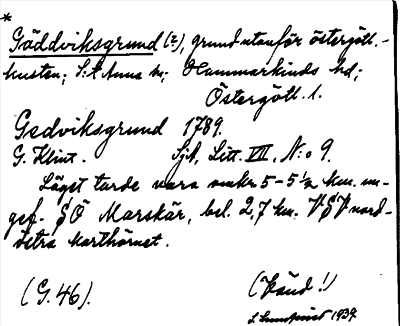 *
Gäddviksgrund (?), grund utanför östergötl.-
kusten; S:t Anna sn; Hammarkinds hd;
Östergötl. l.
Gedviksgrund 1789.
G. Klint. SjA, Litt. VII, N:o 9.
Läget torde vara omkr. 5-5½ km. un-
gef. SÖ Marskär, bel. 2,7 km. VSV nord-
östra korthörnet.
(G. 46). (Vänd!)
1939